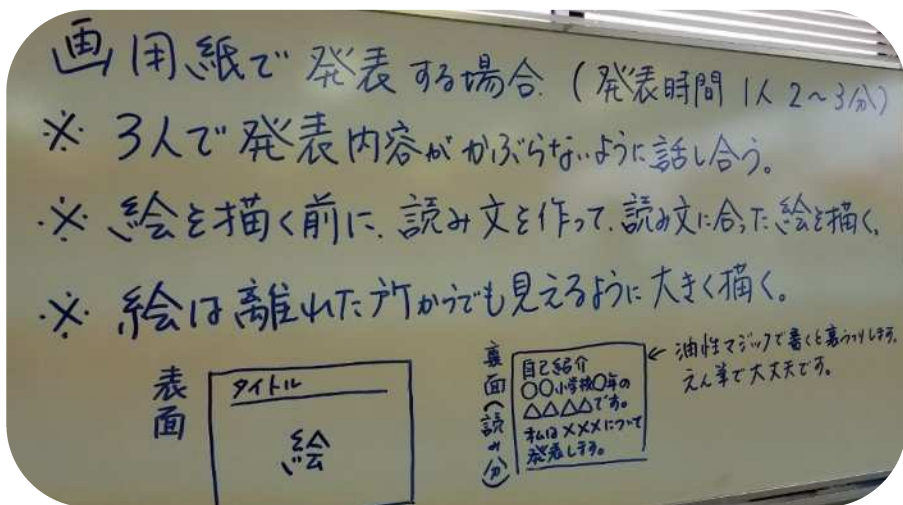 画用紙で発表する場合.(発表時間 1人 2~3分)
※ 3人で発表内容がかぶらないように話し合う。
※ 絵を描く前に、読み文を作って、読み文に合った絵を描く。
※ 絵は離れた所からでも見えるように大きく描く。
表面
タイトル
絵
裏面(読み分)
自己紹介
〇〇小学校〇年の
△△△△です。
私は×××について
発表します。
← 油性マジックで書くと裏うつりします。
えん筆で大丈夫です。